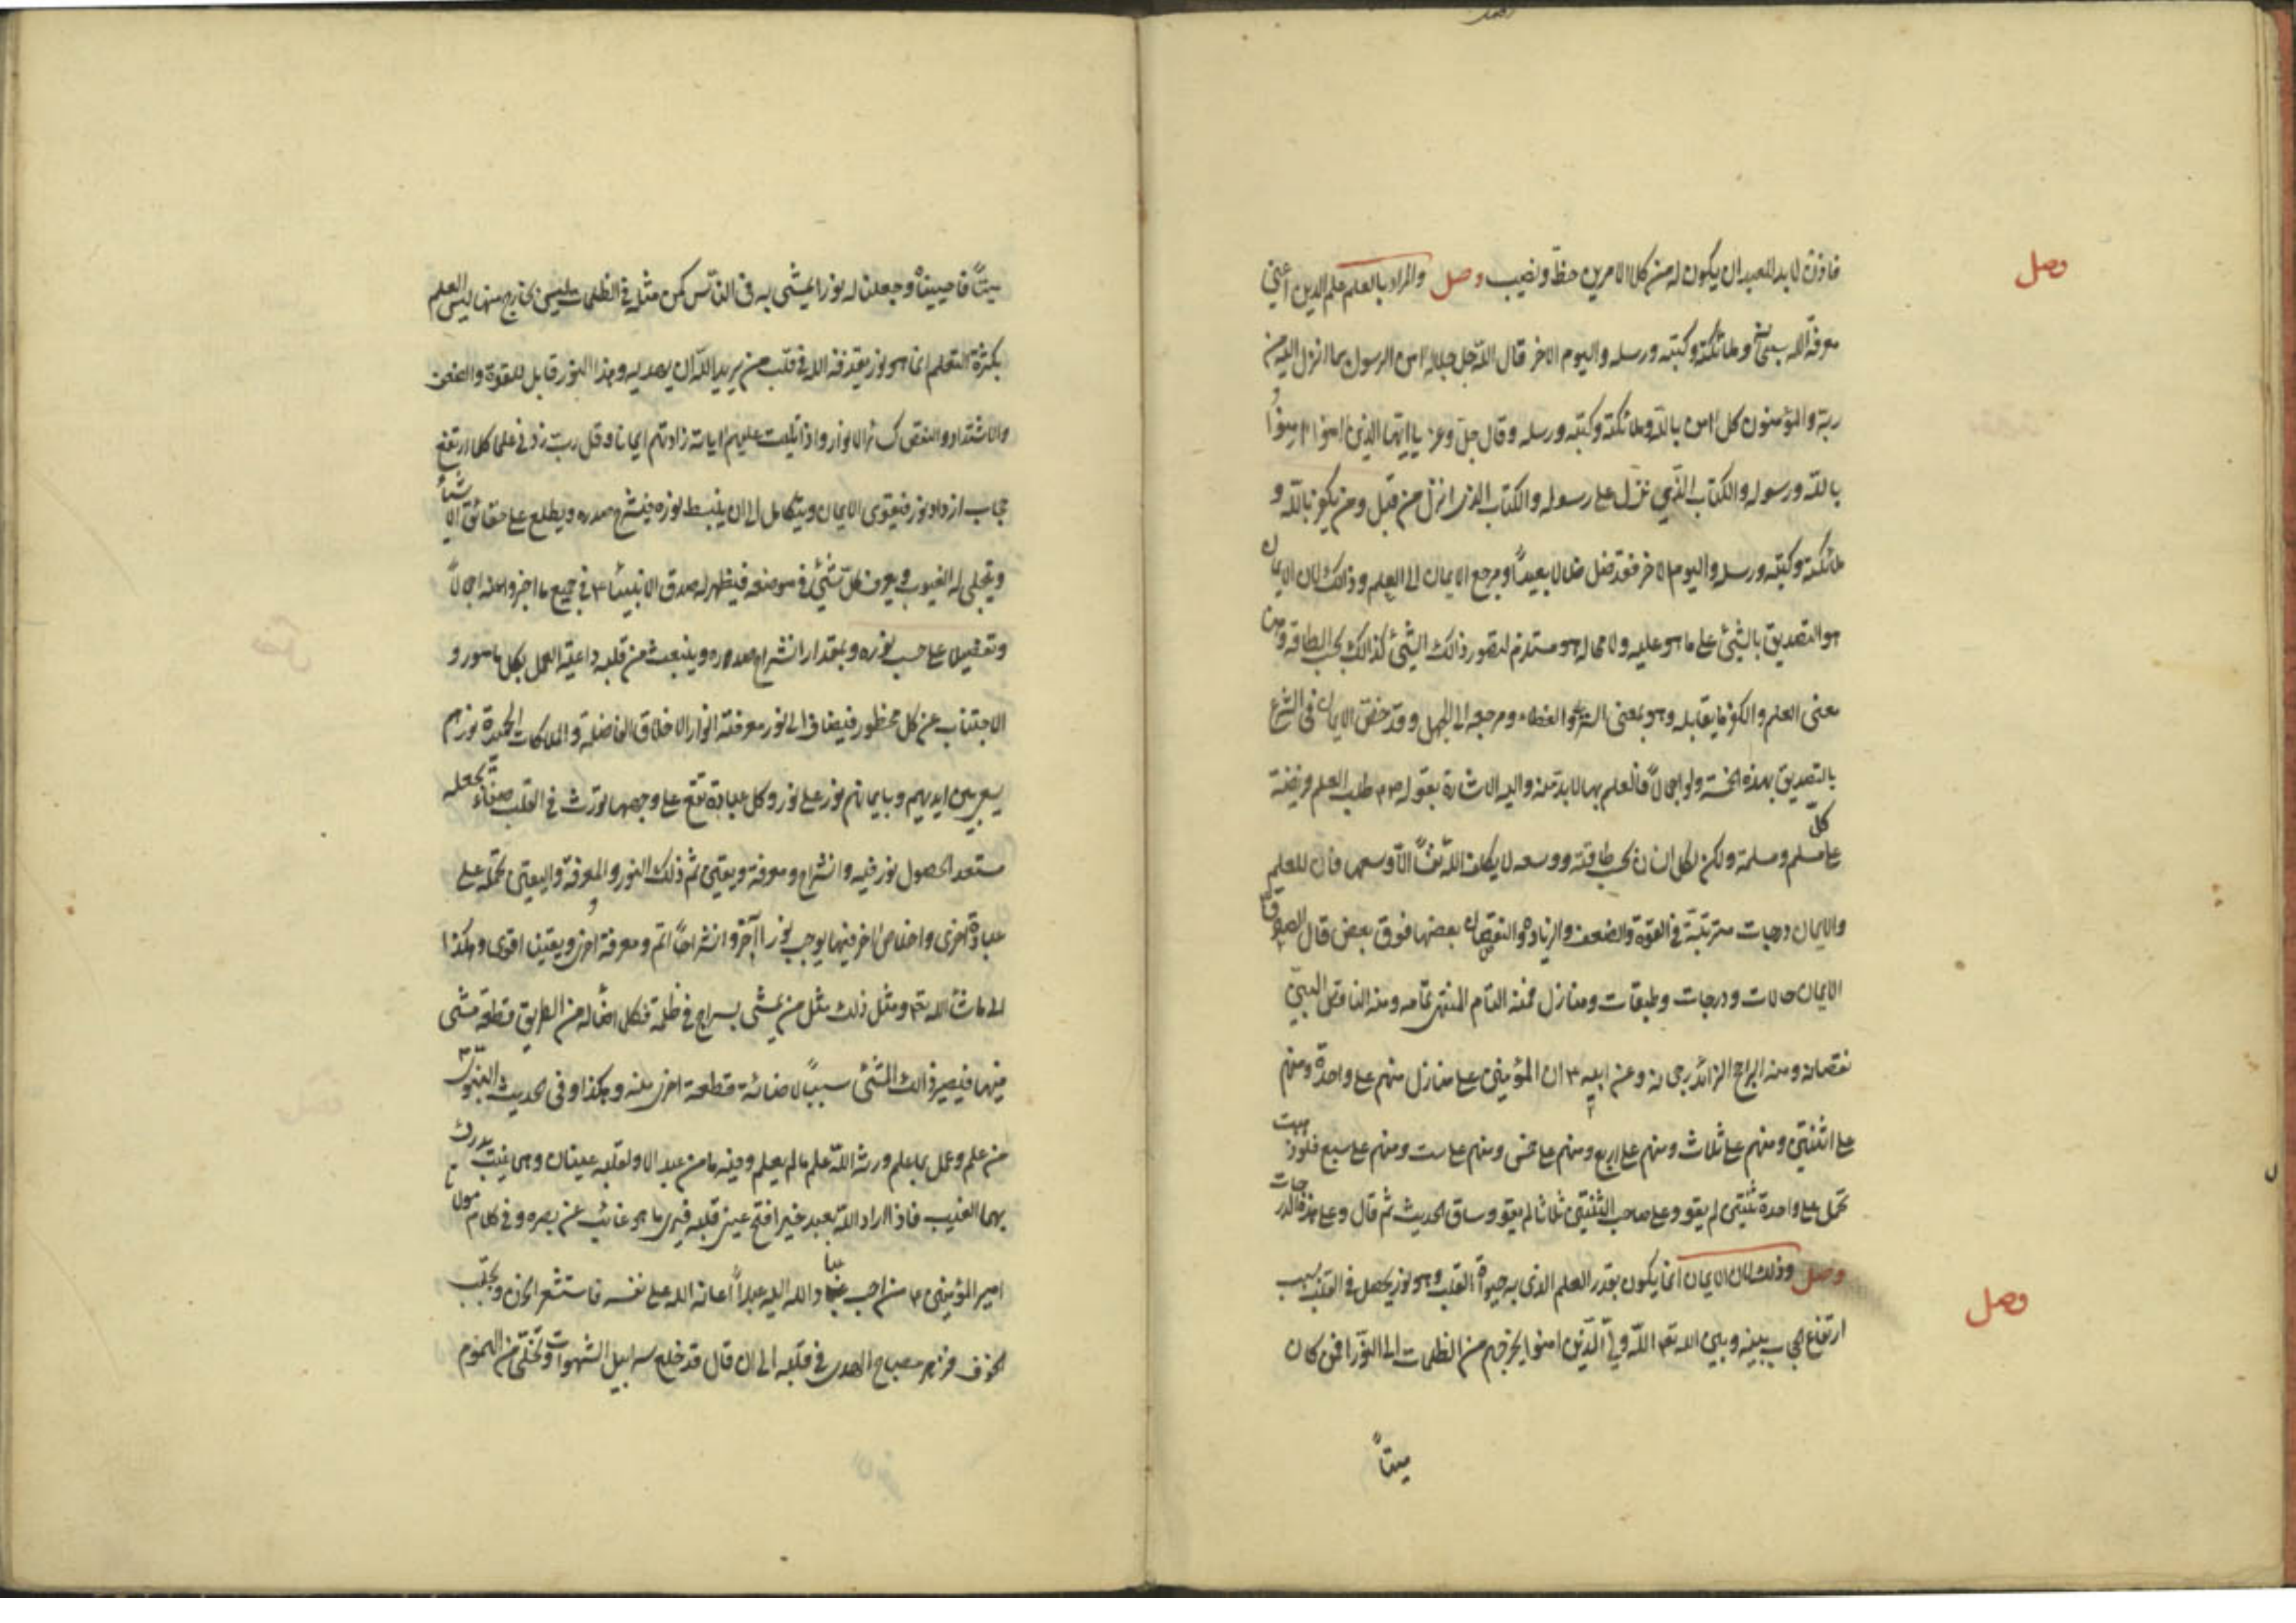 وصل
فاذن لا بد للعبد ان يكون له من كلا الامرين حظ ونصيب وصل والمراد بالعلم علم الدين اعني
معرفة الله سبحانه وملائكته وكتبه ورسله واليوم الاخر قال الله جل جلاله امن الرسول بما انزل اليه من
ربه والمؤمنون كل امن بالله وملائكته وكتبه ورسله وقال جل وعز يا ايها الذين امنوا امنوا
بالله ورسوله والكتاب الذي نزل على رسوله والكتاب الذي انزل من قبل ومن يكفر بالله و
ملائكته وكتبه ورسله واليوم الاخر فقد ضل ضلالا بعيداً ومرجع الايمان الى العلم وذلك لان الايمان
هو التصديق بالشئ على ما هو عليه ولا محاله هو مستلزم لتصور ذلك الشئ كذلك بحسب الطاقة وهما
معنى العلم والكفر ما يقابله وهو بمعنى الستر والغطاء ومرجعه الى الجهل وقد خص الايمان في الشرع
بالتصديق بهذه الخمسة ولو اجمالاً فالعلم بها لا بد منه واليه الاشارة بقوله ص طلب العلم فريضة
على كل مسلم ومسلمة ولكن لكل انسان بحسب طاقته ووسعه لا يكلف الله نفساً الا وسعها فان للعلم
والايمان درجات مترتبة في القوة والضعف والزيادة والنقصان بعضها فوق بعض قال الصادق
الايمان حالات ودرجات وطبقات ومنازل فمنه التام المنتهى تمامه ومنه الناقص البين
نقصانه ومنه الراجح الزائد رجحانه وعن ابيه ع ان المؤمنين على منازل منهم على واحدة ومنهم
على اثنتين ومنهم على ثلاث ومنهم على اربع ومنهم على خمس ومنهم على ست ومنهم على سبع فلو ذهبت
تحمل على واحدة ثنتين لم يقو وعلى صاحب الثنتين ثلاثا لم يقو وساق الحديث ثم قال وعلى هذه الدرجات
وصل وذلك لان الايمان انما يكون بقدر العلم الذي به حيوة القلب وهو نور يحصل في القلب بسبب
وصل
ارتفاع الحجاب بينه وبين الله تع الله ولي الذين امنوا يخرجهم من الظلمات الى النور افمن كان
ميتاً
ميتاً فاحييناه وجعلنا له نورا يمشي به في الناس كمن مثله في الظلمات ليس بخارج منها ليس العلم
بكثرة التعلم انما هو نور يقذفه الله في قلب من يريد الله ان يهديه وهذا النور قابل للقوة والضعف
والاشتداد والنقص كسائر الانوار واذا تليت عليهم اياته زادتهم ايمانا وقل رب زدني علما كلما ارتفع
حجاب ازداد نور فيقوى الايمان ويتكامل الى ان ينبسط نوره فينشرح صدره ويطلع على حقائق الاشياء
وتجلى له الغيوب ويعرف كل شئ في موضعه فيظهر له صدق الانبياء ع في جميع ما اخبروا عنه اجمالاً
وتفصيلا على حسب نوره وبمقدار انشراح صدره وينبعث من قلبه داعية العمل بكل مامور و
الاجتناب عن كل محظور فيضاف الى نور معرفته انوار الاخلاق الفاضلة والملكات الحميدة نورهم
يسعى بين ايديهم وبايمانهم نور على نور وكل عبادة تقع على وجهها تورث في القلب صفاء يجعله
مستعدا لحصول نور فيه وانشراح ومعرفة ويقين ثم ذلك النور والمعرفة واليقين تحمله على
عبادة اخرى واخلاص اخر فيها يوجب نورا آخر وانشراحاً اتم ومعرفة اخرى ويقينا اقوى وهكذا
الى ما شاء الله تع ومثل ذلك مثل من يمشي بسراج في ظلمة فكلما اضاء له من الطريق قطعة مشى
فيها فيصير ذلك المشي سبباً لاضائة قطعة اخرى منه وهكذا وفي الحديث النبوي ص
من علم وعمل بما علم ورثه الله علم ما لم يعلم وفيه ما من عبد الا ولقلبه عينان وهما غيب يدرك
بهما الغيب فاذا اراد الله بعبد خيرا فتح عيني قلبه فيرى ما هو غائب عن بصره وفي كلام مولنا
امير المؤمنين ع من احب عباد الله اليه عبداً اعانه الله على نفسه فاستشعر الحزن وتجلبب
الخوف فزهر مصباح الهدى في قلبه الى ان قال قد خلع سرابيل الشهوات وتخلى من الهموم